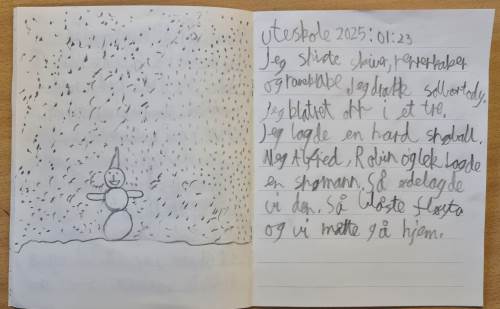 uteskole 2025:01:23
Jeg spiste skiver, pepperkaker
og Jeg drakk solbærtody.
Jeg klatret opp i et tre.
Jeg lagde en hard snøball.
Meg Alfred, Robin og lagde
en snømann. Så ødelagde
vi den. Så fløyta
og vi måtte gå hjem.